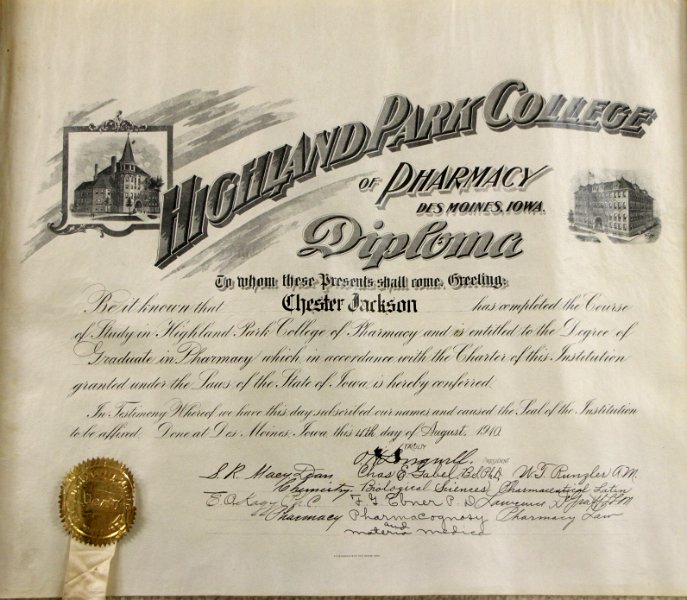 HIGHLAND PARK COLLEGE
OF PHARMACY
DES MOINES, IOWA.
Diploma
To whom these Presents shall come, Greeting:
Be it known that Chester Jackson has completed the Course
of Study in Highland Park College of Pharmacy and is entitled to the Degree of
Graduate in Pharmacy which, in accordance with the Charter of this Institution
granted under the Laws of the State of Iowa, is hereby conferred.
In Testimony Whereof we have this day subscribed our names and caused the Seal of the Institution
to be affixed. Done at Des Moines, Iowa this 4th day of August, 1910.
PRESIDENT
S. R. Macy, Dean Chas E. Gabel, W. T.
Chemistry Biological Sciences Pharmaceutical Latin
E. O. Kagy Ph.C. F. G. Ebner P. D.
Pharmacy Pharmacognosy Pharmacy Law
and
materia medica